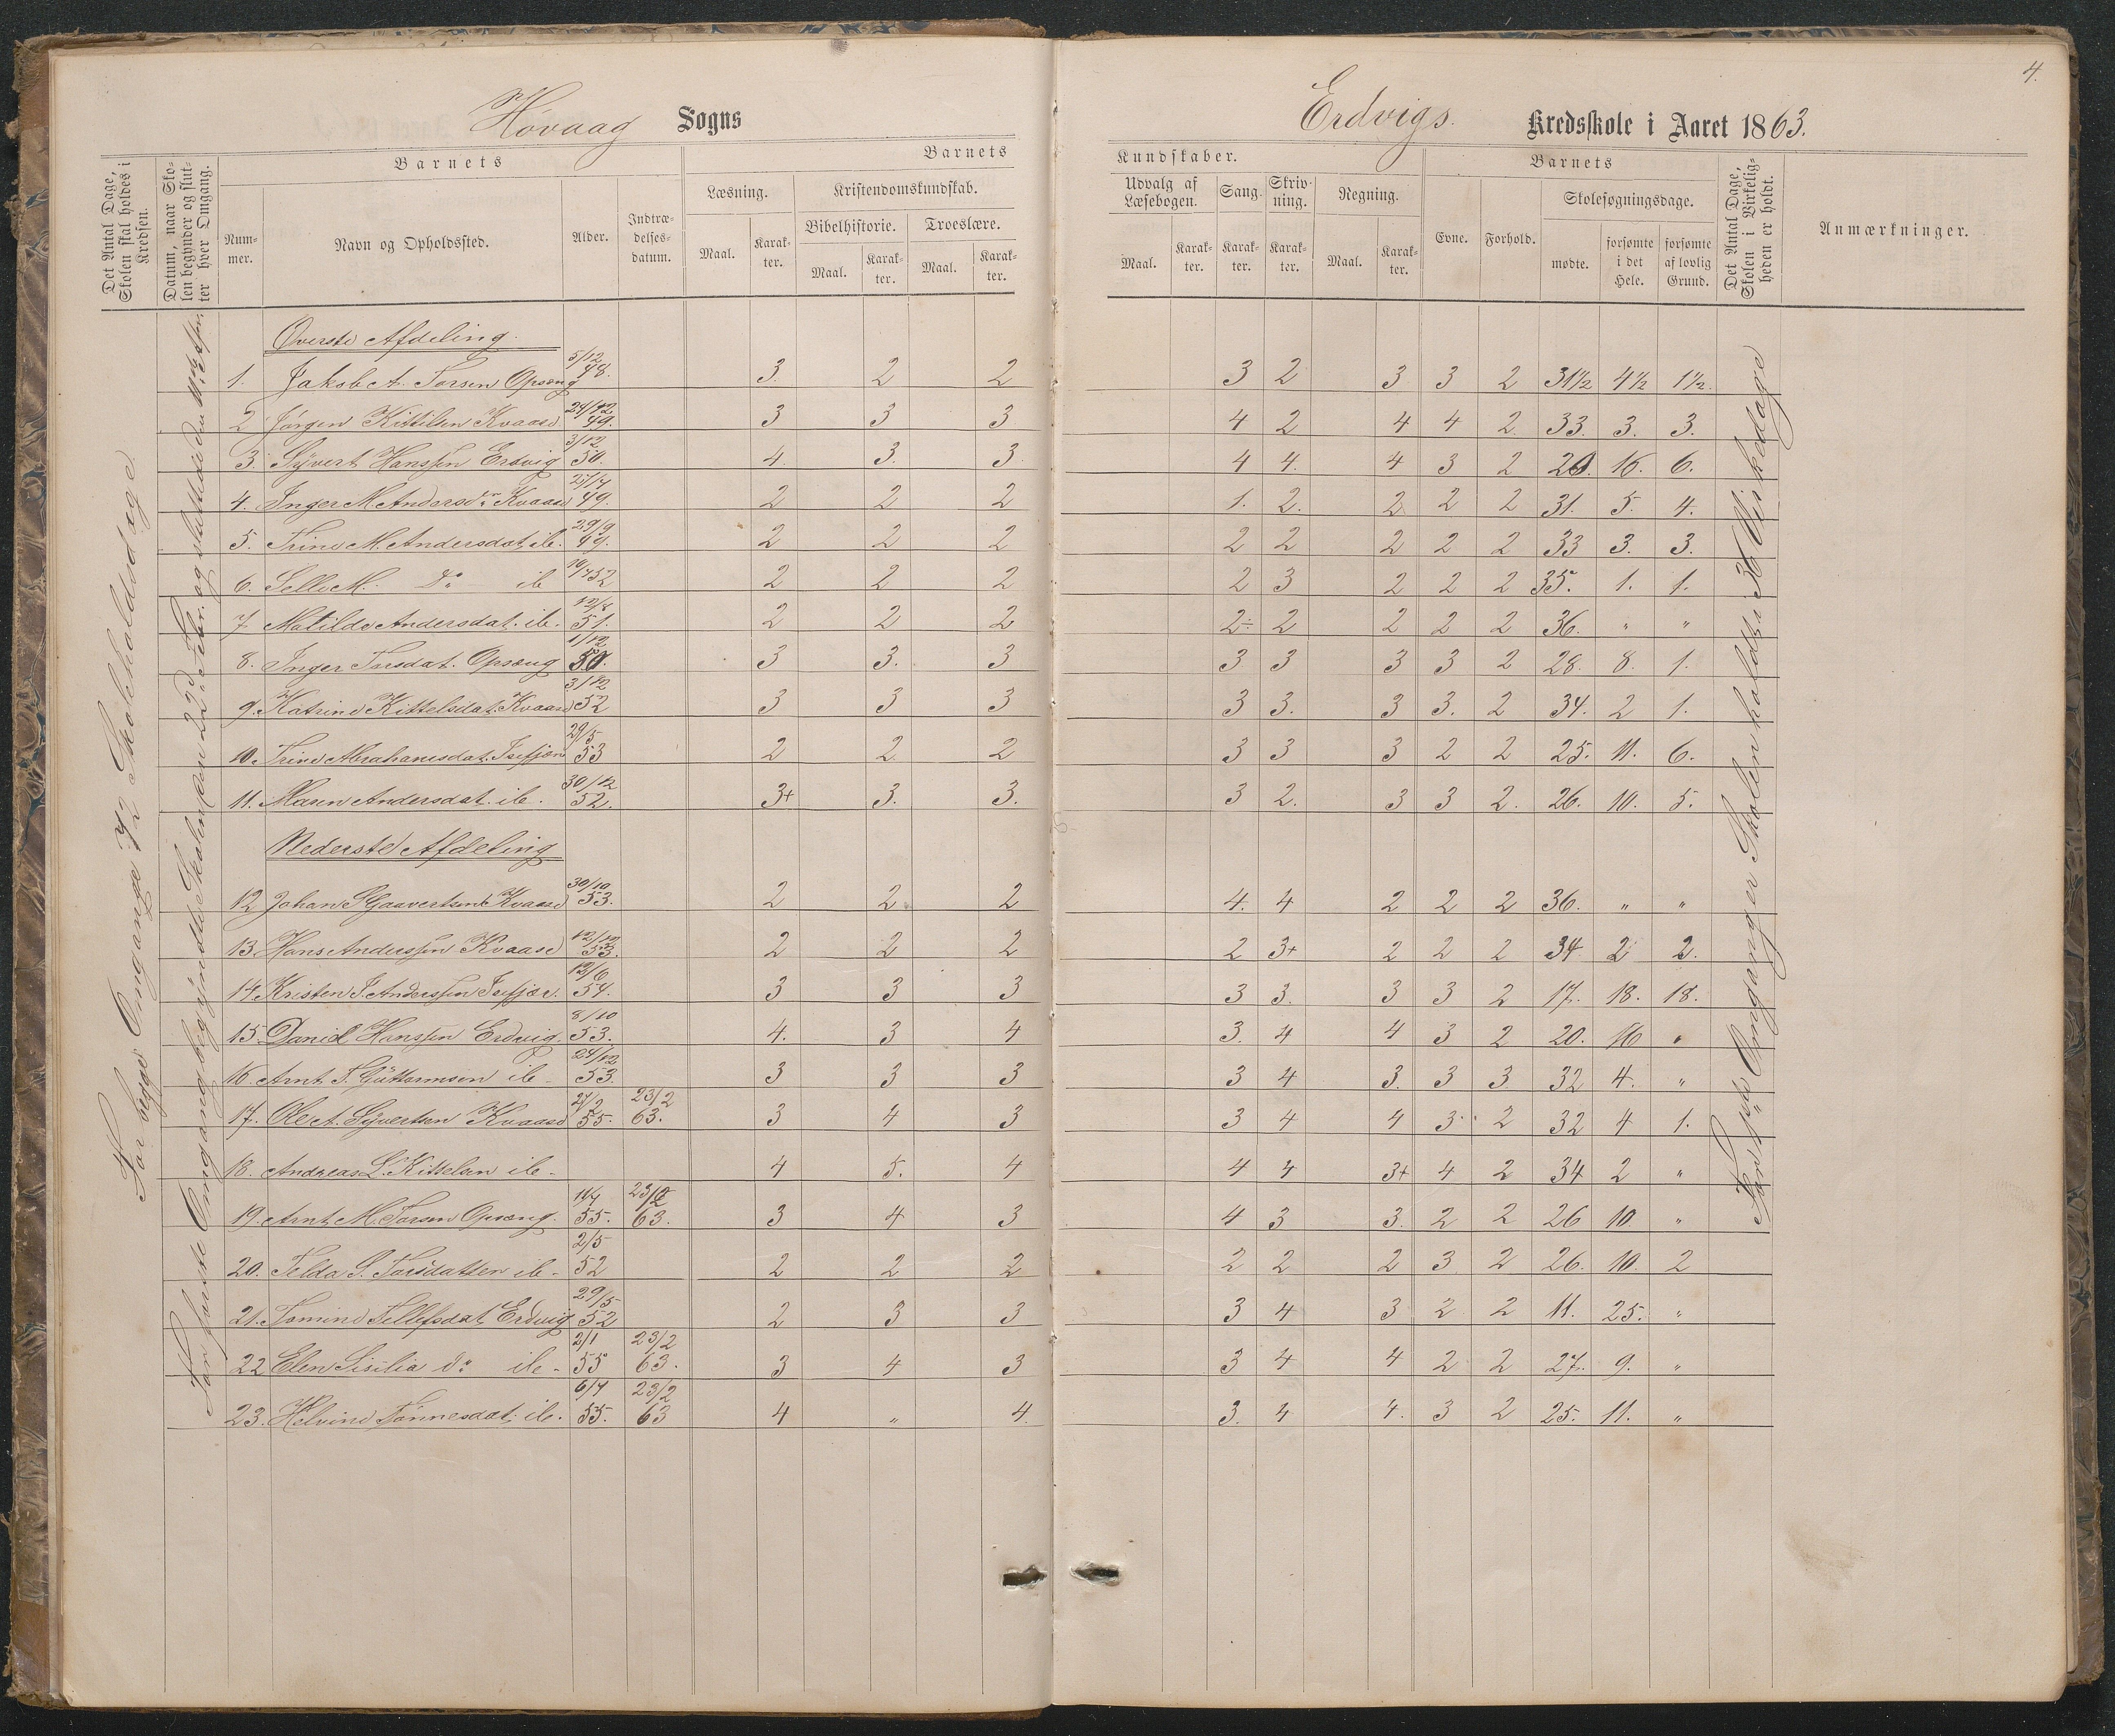 4.
Høvaag Sogns
Erdvigs. Kredsskole i Aaret 1863.
Det Antal Dage, Skolen skal holdes i Kredsen.
Datum, naar Skolen begynder og slutter hver Omgang.
Barnets
Nummer.
Navn og Opholdssted.
Alder.
Indtrædelsesdatum.
Barnets Kundskaber.
Læsning.
Maal. Karakter.
Kristendomskundskab.
Bibelhistorie.
Maal. Karakter.
Troeslære.
Maal. Karakter.
Udvalg af Læsebogen.
Maal. Karakter.
Sang. Karakter.
Skrivning. Karakter.
Regning.
Maal. Karakter.
Barnets
Evne. Forhold.
Skolesøgningsdage.
mødte. forsømte i det Hele. forsømte af lovlig Grund.
Det Antal Dage, Skolen i Virkeligheden er holdt.
Anmærkninger.
For begge Omgange 72 Skoleholdsdage
For første Omgang begyndte Skolen den 22d Febr. og sluttede den
For 1ste Omgang er Skolen holdt i 36 Virkedage
Øverste Afdeling.
1. Jakob A. Torsen Opsang 5/12 48. 3. 2 2 3 2 3 3 2 31½ 4½ 1½.
2 Jørgen Kittilsen Kvaase 24/12 49. 3 3 3 4 2 4 4 2 33. 3. 3.
3. Syvert Hanssen Erdvig 3/12 50. 4. 3. 3 4 4. 4 3 2 20. 16. 6.
4. Inger M Andersdr Kvaase 49. 2 2 2 1. 2. 2 2 2 31. 5. 4.
5. Trine M. Andersdat. ib. 29/9 49. 2 2 2 2 2 2 2 2 33 3. 3.
6. Selle M. Do ib 52 2 2 2 2 3 2 2 2 35. 1. 1.
7. Matilde Andersdat. ib. 12/8 51. 2 2 2 2÷ 2 2 2 2 36. " "
8. Inger Torsdat. Opsang 1/12 50. 3 3. 3 3 3 3 3 2 28. 8. 1.
9. Katrine Kittelsdat. Kvaase 3/12 52 3 3 3 3 3. 3 3. 2 34. 2 1.
10. Trine Abrahamsdat. 29/5 53 2 2 2 3 3 3 2 2 25. 11. 6.
11. Maren Andersdat. ib. 30/12 52. 3+ 3. 3. 3 2. 3 3 2. 26. 10. 5.
Nederste Afdeling
12 Johan S Kvaase 30/10 53. 2 2 2 4. 4 2 2 2 36. " "
13. Hans Anderssen Kvaase 12/12 53. 2 2 2 2 3+ 2 2 2 34 2 2.
14. Kristen J. Anderssen 12/6 54. 3 3 3 3 3. 3 3 2 17. 18. 18.
15. Daniel Hanssen Erdvig. 8/10 53. 4. 3 4 3. 4 4 3 2 20. 16 "
16. Arnt T. Guttormsen ib. 24/12 53. 3 3 3 3 4 3. 3 3 32 4. "
17. Ole A. Syvertsen Kvaase 55. 23/2 63. 3 4 3 3 4 4 3 2 32 4 1.
18. Andreas L. Kittelsen ib. 4 5. 4 4 4 3+ 4 2 34 2 "
19. Arnt M. Torsen Opsang. 55. 23/2 63. 3 4 3 4 3 3. 2 2 26 10. "
20. Telda S. Torsdatter ib. 2/5 52 2 2 2 2 2 2 3 2 26. 10 2
21. Tomine Tellefsdat. Erdvig 29/5 52 2 3 3 3 4 3 2 2 11. 25. "
22 Elen Sisilia do ib. 2/1 55 23/2 63. 3 4 3 3 4 4 2 2 27. 9. "
23. Helvine Tønnesdat. ib. 55. 23/2 63 4 " 4. 3. 4 4. 3 2 25. 11. "